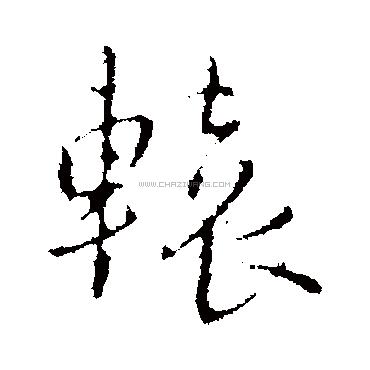 轅
WWW.CHAZIWANG.COM